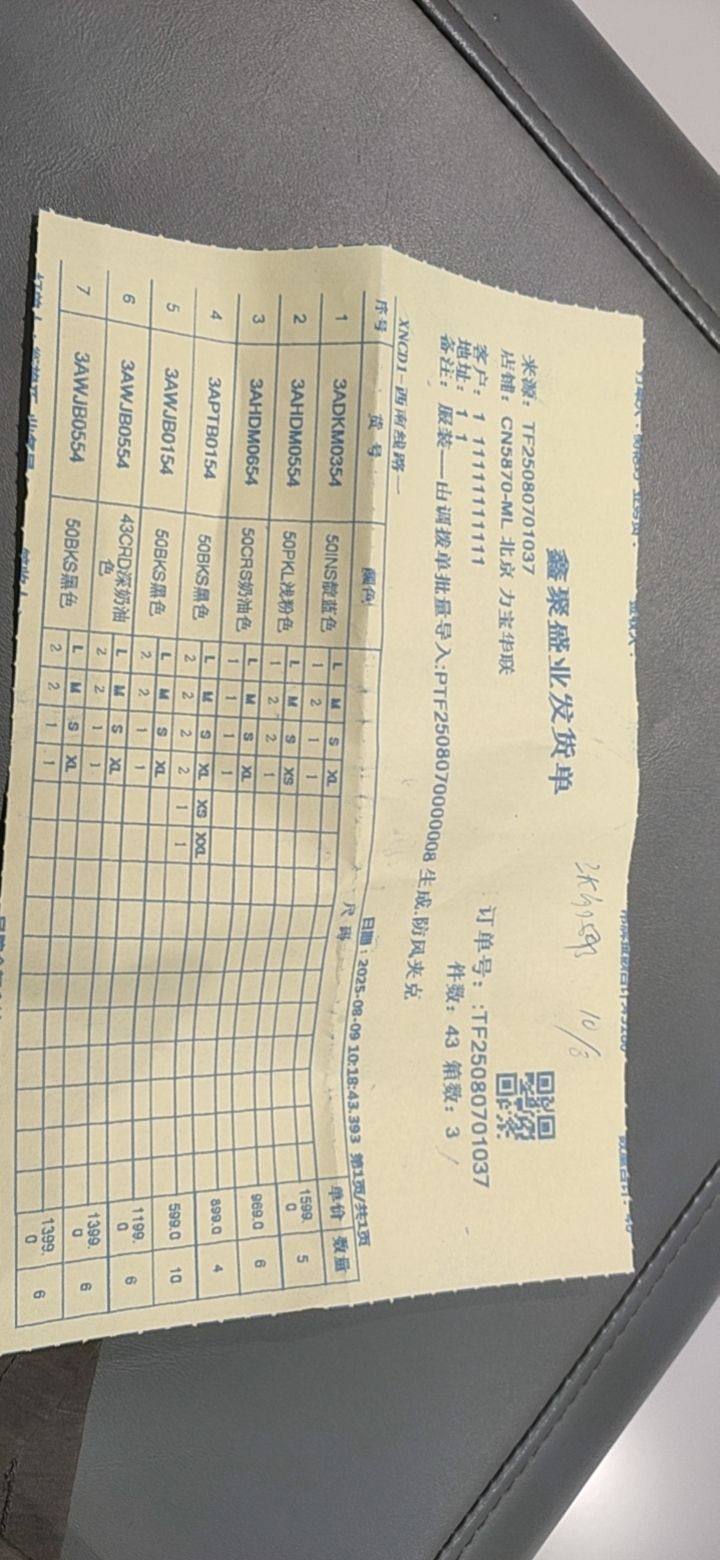 鑫聚盛业发货单
来源: TF25080701037 订单号: :TF25080701037
店铺: CN5870-ML 北京 力宝华联 件数: 43 箱数: 3
客户: 1 11111111111
地址: 1 1
备注: 服装—由调拨单批量导入:PTF2508070000008 生成.防风夹克
XNCD1-西南线路— 日期: 2025-08-09 10:18:43.393 第1页/共1页
序号 货号 颜色 尺码 单价 数量
1 3ADKM0354 50INS靛蓝色 L M S XL 1599.0 5
1 2 1 1
2 3AHDM0554 50PKL浅粉色 L M S XS 969.0 6
1 2 2 1
3 3AHDM0654 50CRS奶油色 L M S XL 899.0 4
1 1 1 1
4 3APTB0154 50BKS黑色 L M S XL XS XXL 599.0 10
2 2 2 2 1 1
5 3AWJB0154 50BKS黑色 L M S XL 1199.0 6
2 2 1 1
6 3AWJB0554 43CRD深奶油色 L M S XL 1399.0 6
2 2 1 1
7 3AWJB0554 50BKS黑色 L M S XL 1399.0 6
2 2 1 1